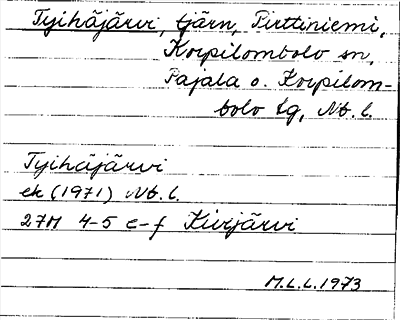 Tyihäjärvi, tjärn, Pirttiniemi,
Korpilombolo sn,
Pajala o. Korpilom-
bolo tg, Nb. l.
Tyihäjärvi
ek (1971) Nb. l.
27M 4-5 e-f Kivijärvi
M.L.L. 1973